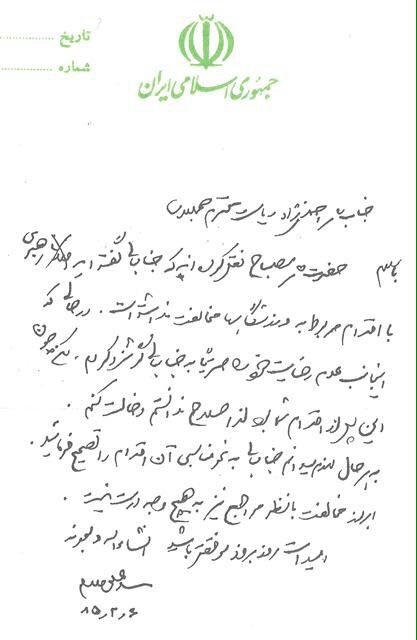 تاریخ
شماره
جمهوری اسلامی ایران
جناب آقای احمدی‌نژاد ریاست محترم جمهوری
با سلام حضرت آقای مصباح نقل کردند که جنابعالی گفته‌اید رهبری
با اقدام مربوط به ورزشگاهها مخالفت نداشته است. در حالی که
اینجانب عدم رضایت خود را صریحاً به جنابعالی گوشزد کردم. لکن چون
این پس از اقدام شما بود لذا صلاح ندانستم دخالت کنم.
به هر حال لازم میدانم جنابعالی به نحو مناسبی آن اقدام را تصحیح فرمائید.
ابراز مخالفت با نظر مراجع نیز به هیچ وجه درست نیست.
امید است روز بروز موفقتر باشید انشاءاله
۸۵٫۲٫۶